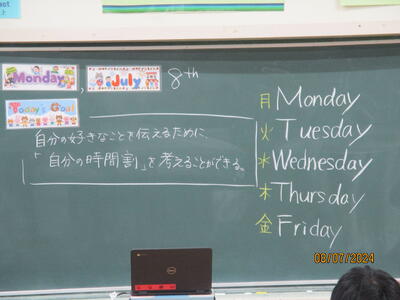 Monday, July 8th
Today's Goal
自分の好きなことを伝えるために、
「自分の時間割」を考えることができる。
月 Monday
火 Tuesday
水 Wednesday
木 Thursday
金 Friday
DELL
08/07/2024